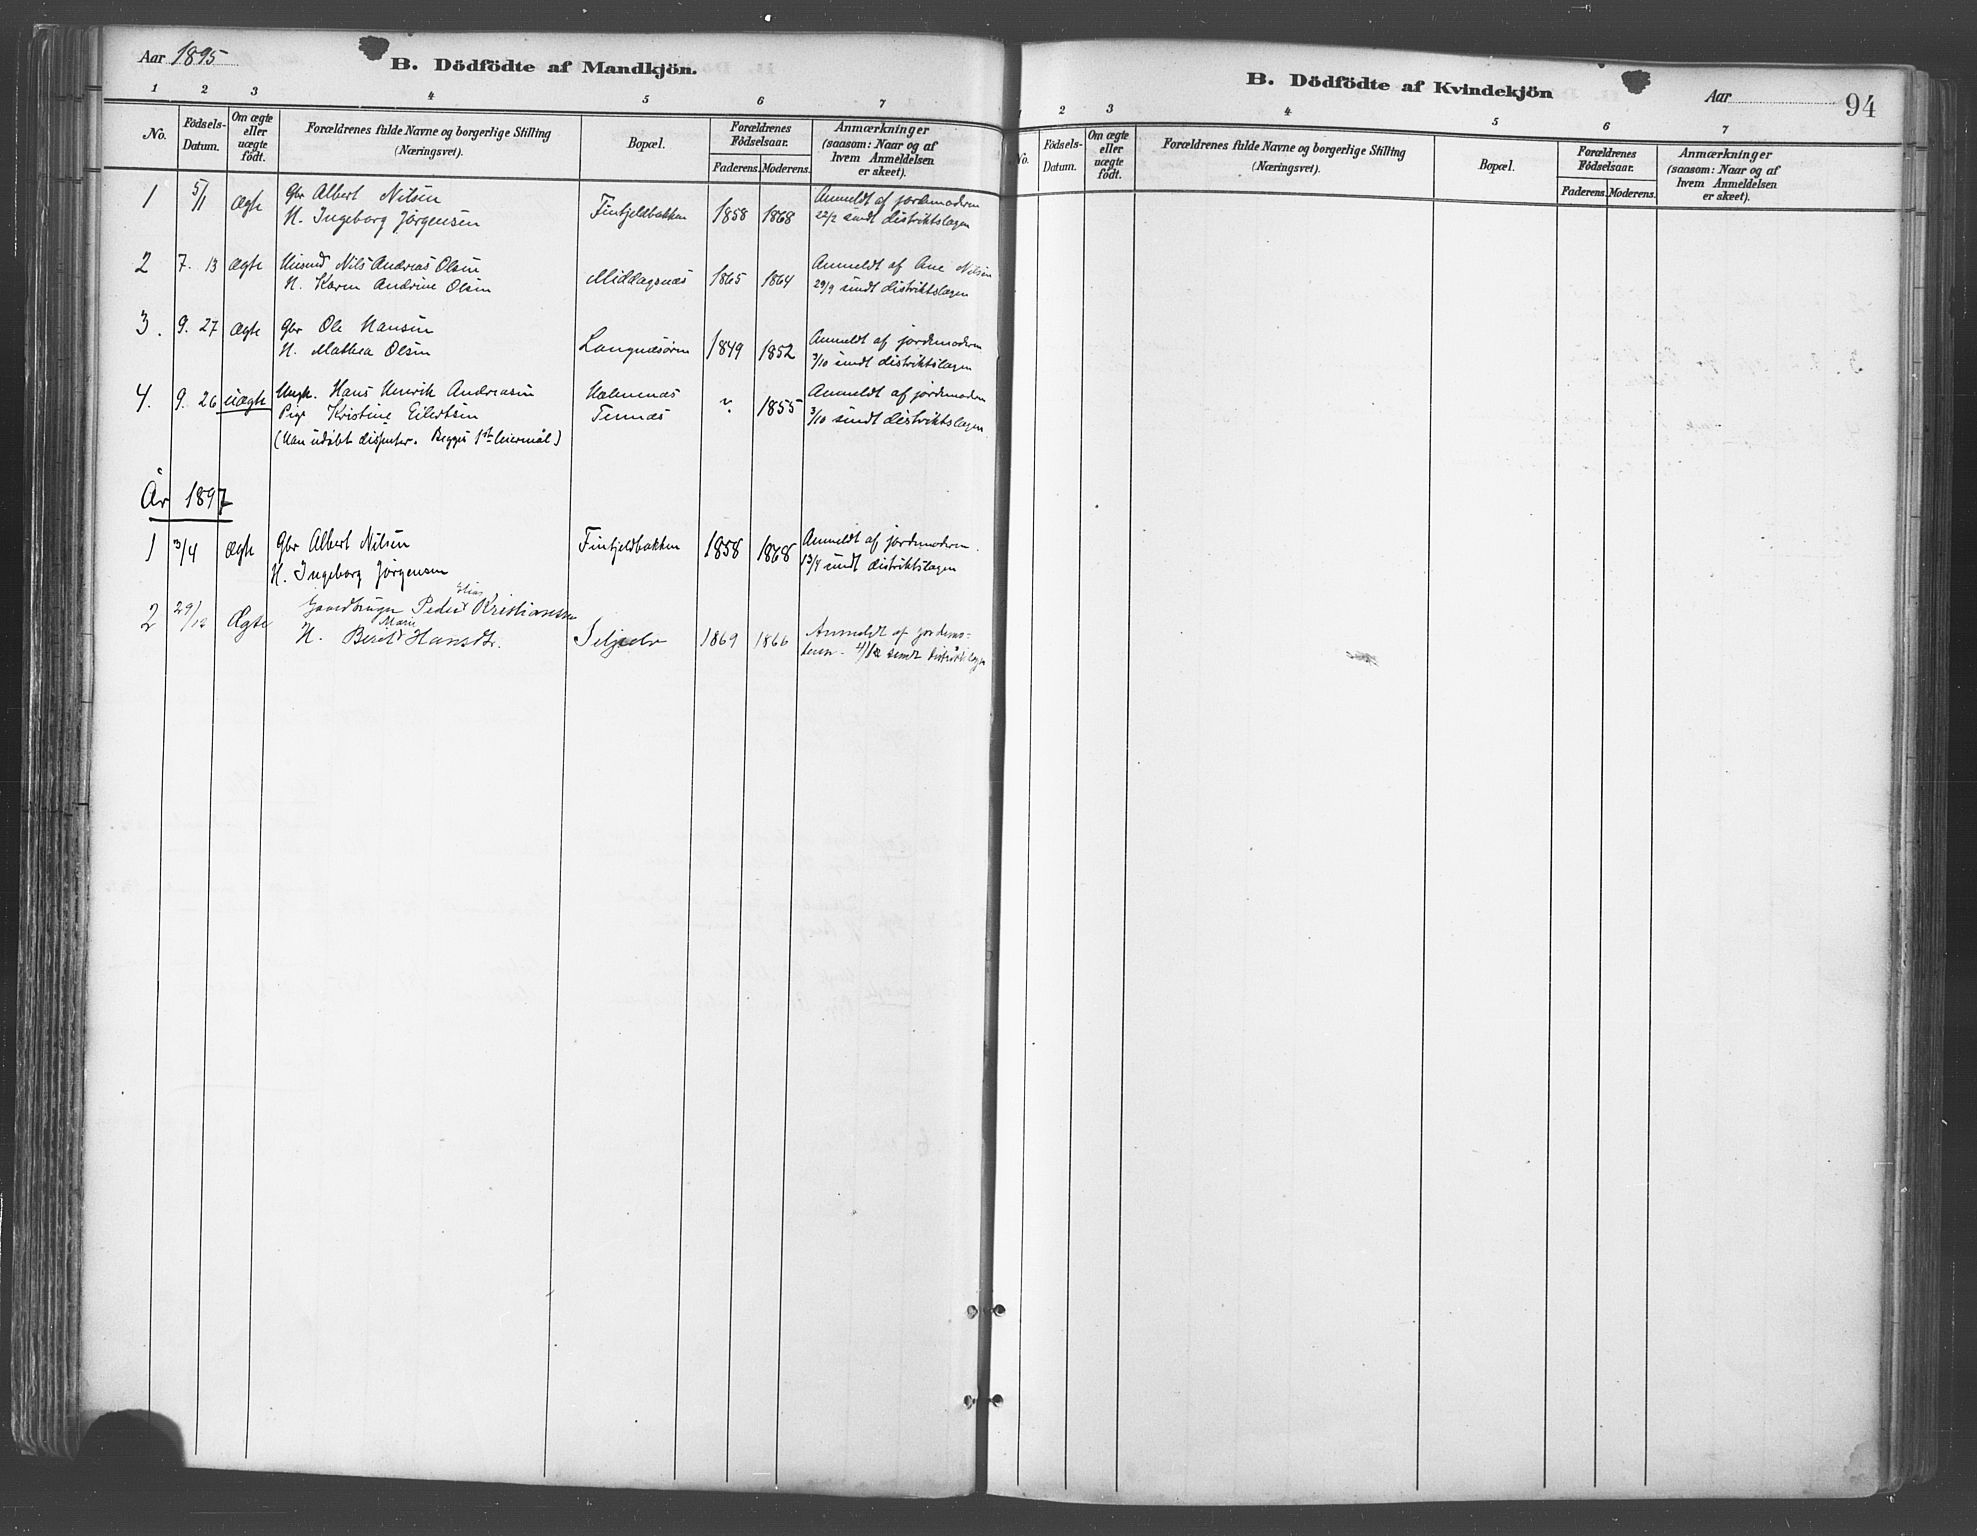 Aar 1895
B. Dödfödte af Mandkjön.
1 2 3 4 5 6 7
No. Födsels-Datum. Om ægte eller uægte födt. Forældrenes fulde Navne og borgerlige Stilling (Næringsvei). Bopæl. Forældrenes Födselsaar. Faderens. Moderens. Anmærkninger (saasom: Naar og af hvem Anmeldelsen er skeet).
1 5/1 Ægte Gbr Albert Nilsen Finfjeldbakken 1858 1868 Anmeldt af jordemoderen
H. Ingeborg Jørgensen 22/2 sendt distriktslægen
2 7. 13 Ægte Nils Andreas Olsen Middagsnæs 1865 1864 Anmeldt af Ane Nilsen
H. Karen Andrine Olsen 29/9 sendt distriktslægen
3. 9. 27 Ægte Gbr Ole Hansen Langnæsøren 1849 1852 Anmeldt af jordemoderen
H. Mathea Olsen 3/10 sendt distriktslægen
4. 9. 26 uægte Ungk. Hans Henrik Andreasen Holmenæs ? 1855 Anmeldt af jordemoderen
Pige Kristine Eilertsen Ternæs 3/10 sendt distriktslægen
(Han udøbt dissenter. Begges 1ste leiermål)
År 1897
1 3/4 Ægte Gbr Albert Nilsen Finfjeldbakken 1858 1868 Anmeldt af jordmoderen.
H. Ingeborg Jørgensen 13/4 sendt distriktslægen
2 29/12 Ægte Gaardbruger Peder Elias Kristiansen
H. Beret Marie Hansdtr. 1869 1866 Anmeldt af jordemo-
deren. sendt distriktslægen
B. Dödfödte af Kvindekjön
Aar
94
1 2 3 4 5 6 7
No. Födsels-Datum. Om ægte eller uægte födt. Forældrenes fulde Navne og borgerlige Stilling (Næringsvei). Bopæl. Forældrenes Födselsaar. Faderens. Moderens. Anmærkninger (saasom: Naar og af hvem Anmeldelsen er skeet).